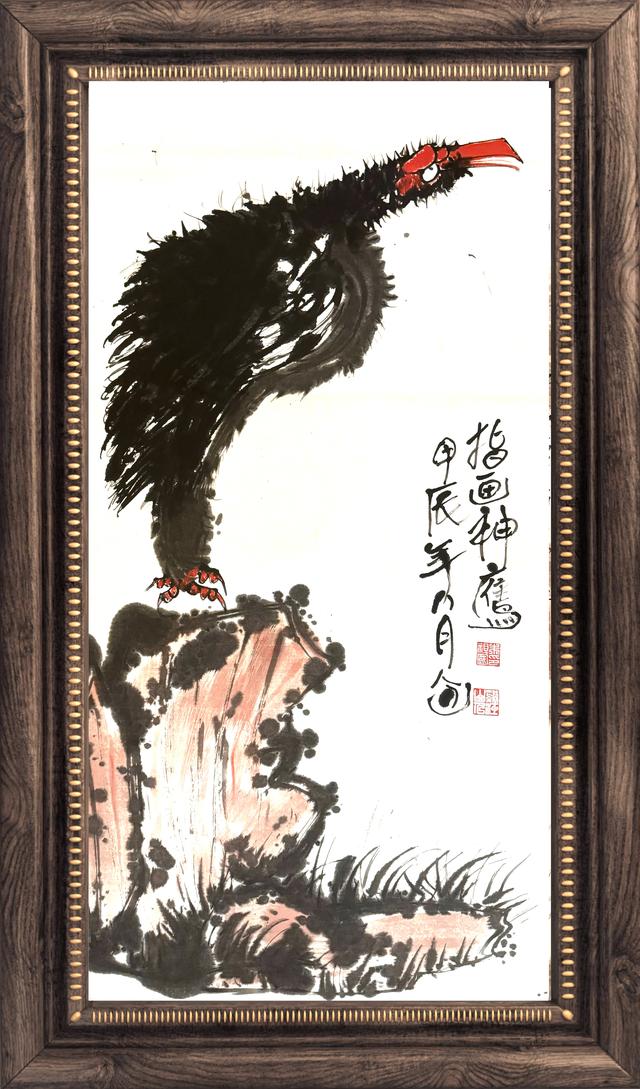 指画神鹰
甲辰年八月